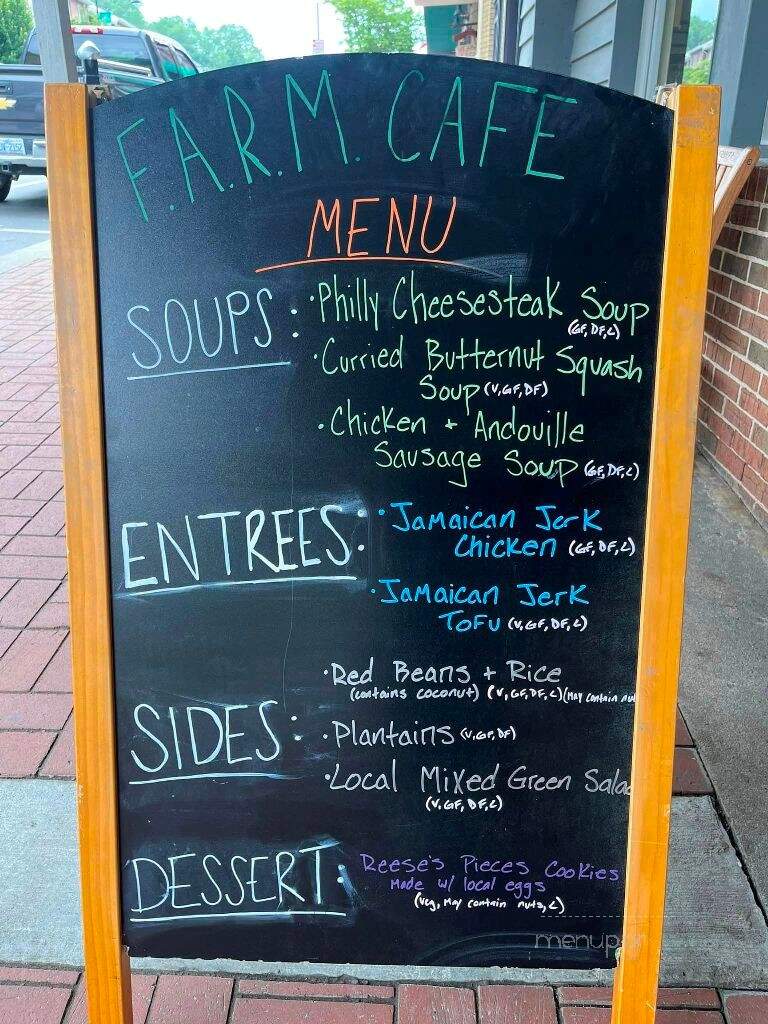 F.A.R.M. CAFE
MENU
SOUPS:
·Philly Cheesesteak Soup
(GF, DF, L)
·Curried Butternut Squash
Soup (V, GF, DF)
·Chicken + Andouille
Sausage Soup (GF, DF, L)
ENTREES:
·Jamaican Jerk
Chicken (GF, DF, L)
·Jamaican Jerk
TOFU (V, GF, DF, L)
SIDES:
·Red Beans + Rice
(contains coconut) (V, GF, DF, L) (May contain nu
·Plantains (V, GF, DF)
·Local Mixed Green Salad
(V, GF, DF, L)
DESSERT:
Reese's Pieces Cookies
Made w/ local eggs
(Veg, May contain nuts, L)
menupix